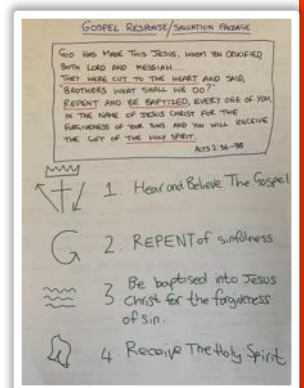 GOSPEL RESPONSE/SALVATION PACKAGE
GOD HAS MADE THIS JESUS, WHOM YOU CRUCIFIED,
BOTH LORD AND MESSIAH....
THEY WERE CUT TO THE HEART AND SAID,
"BROTHERS WHAT SHALL WE DO?"
REPENT AND BE BAPTIZED, EVERY ONE OF YOU,
IN THE NAME OF JESUS CHRIST FOR THE
FORGIVENESS OF YOUR SINS AND YOU WILL RECEIVE
THE GIFT OF THE HOLY SPIRIT.
ACTS 2:36-38
1. Hear and Believe The Gospel
G 2. REPENT of sinfulness
3 Be baptised into Jesus
Christ for the forgiveness
of sin.
4. Receive The Holy Spirit